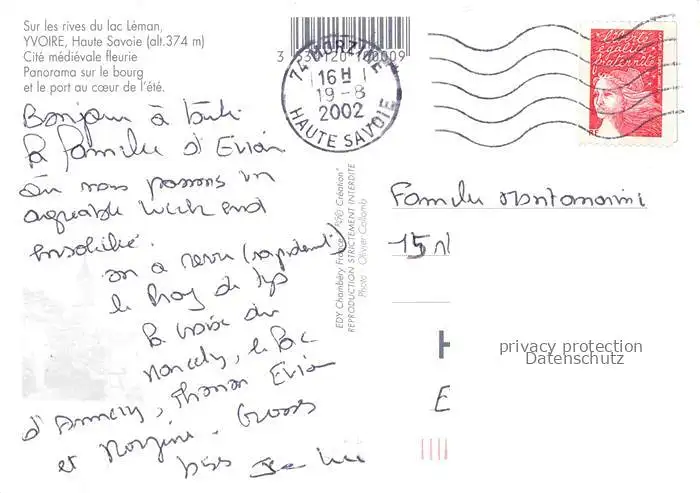 Sur les rives du lac Léman,
YVOIRE, Haute Savoie (alt.374 m)
Cité médiévale fleurie
Panorama sur le bourg
et le port au cœur de l'été.
74 MORZINE
16 H
19-8
2002
HAUTE SAVOIE
liberté
égalité
fraternité
RF
Bonjour à toute
la famille d'Evian
où nous passons un
agréable week end
ensoleillé.
on a revu (rapidement)
le
la croix du
, le lac
d'Annecy, Thonon Evian
et Morzine. Grosses
bises
EDY Chambéry France "APS Création"
REPRODUCTION STRICTEMENT INTERDITE
Photo : Olivier Collomb
Famille
15
H
E
privacy protection
Datenschutz